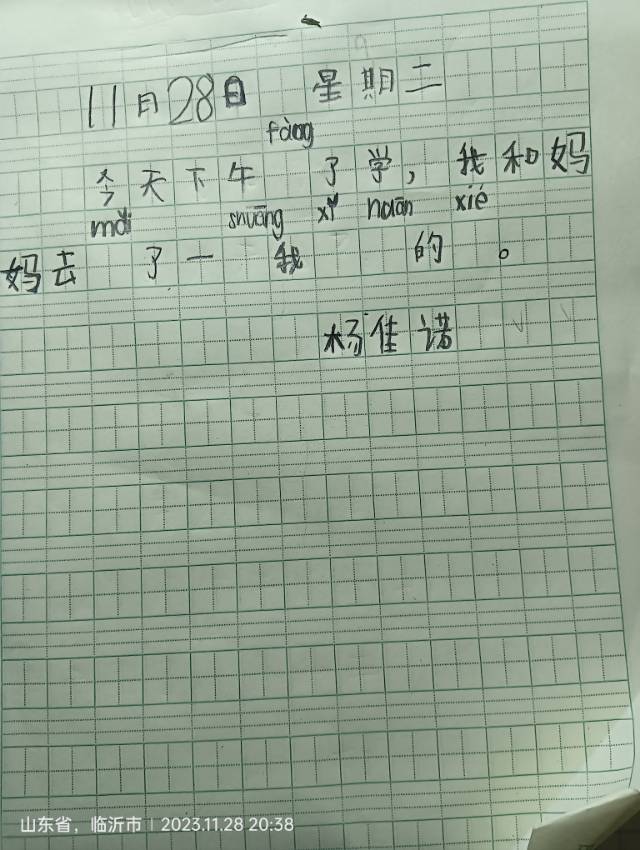 11月28日 星期二
fàng
今天下午 了学，我和妈
mǎi shuāng xǐ huān xié
妈去 了一 我 的 。
杨佳诺
山东省，临沂市 | 2023.11.28 20:38